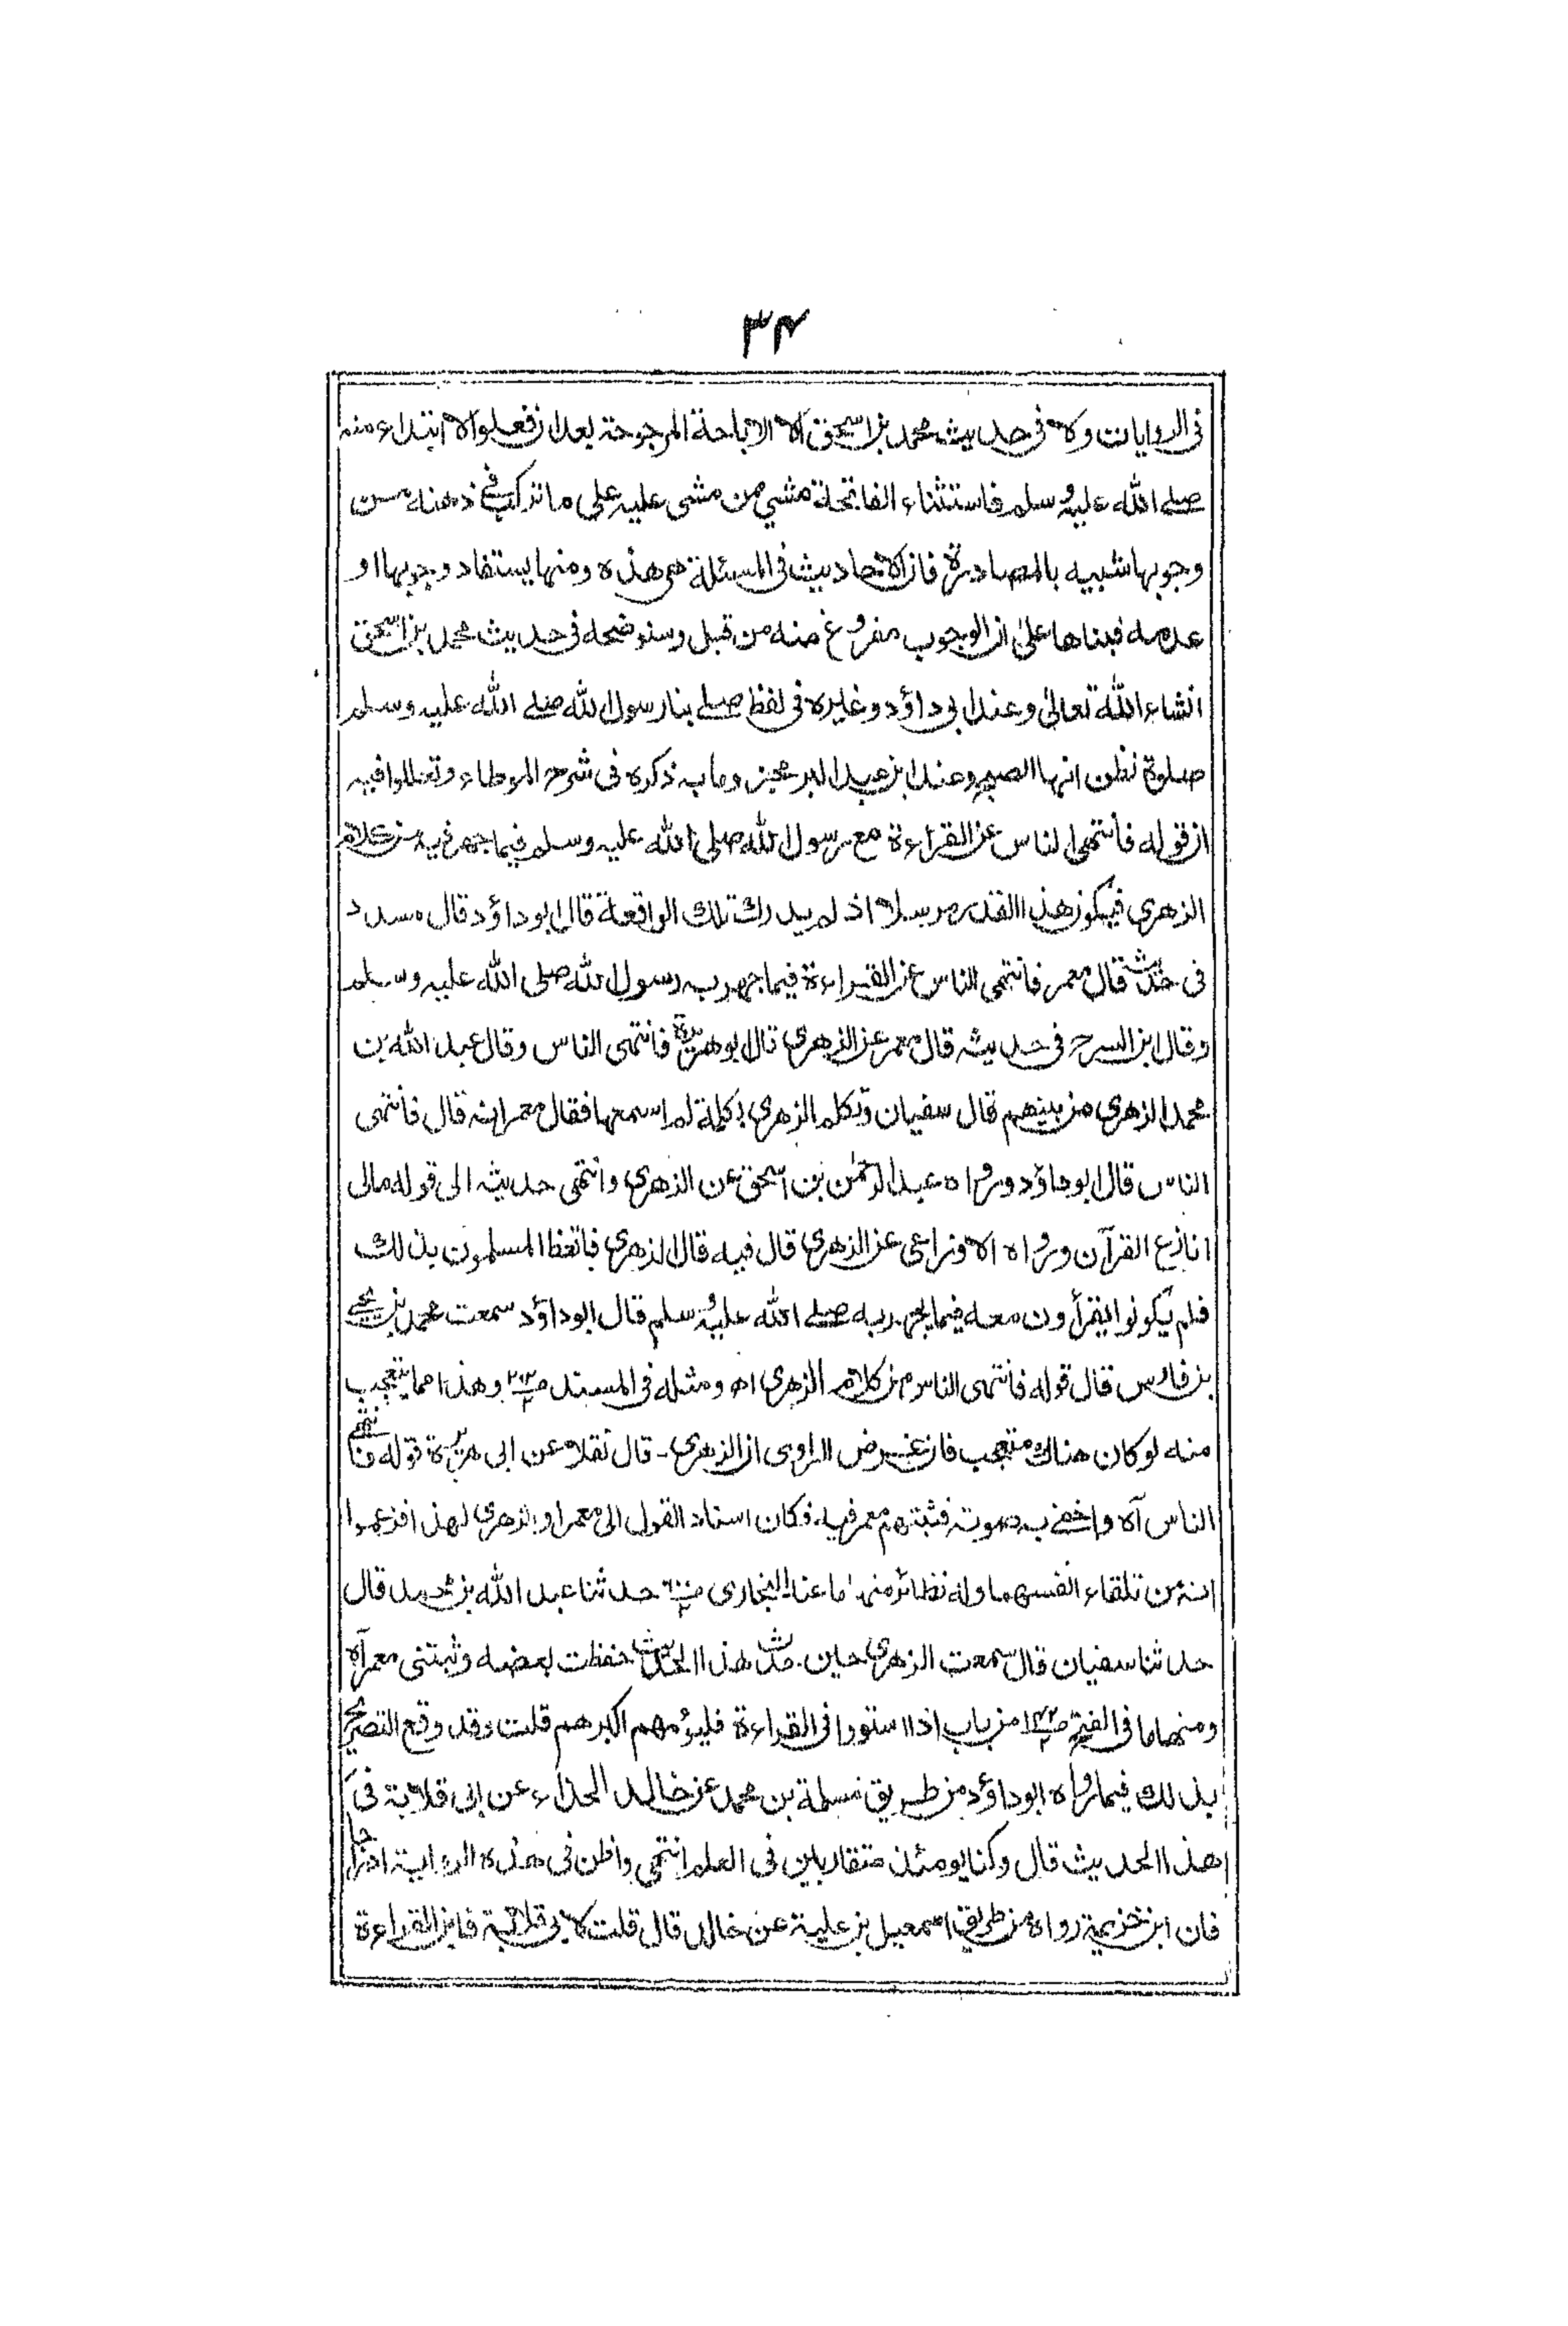 ٣٤
فى الروايات ولا فى حديث محمد بن اسحق الا الاباحة المرجوحة بعد ان فعلوا لا ابتداء منه
صلے الله عليه وسلم فاستثناء الفاتحة مشي ممن مشى عليه على ما تركب فى ذهنه من
وجوبها شبيه بالمصادرة فان الاحاديث فى المسئلة هى هذه ومنها يستفاد وجوبها او
عدمه فبناها على ان الوجوب مفروغ منه من قبل وسنوضحه فى حديث محمد بن اسحق
انشاء الله تعالى وعند ابى داؤد وغيره فى لفظ صلے بنا رسول الله صلے الله عليه وسلم
صلوة نظن انها الصبح وعند ابن عبد البر مجيز وما به ذكره فى شرح الموطاء وتعللوا فيه
ان قوله فأنتهى الناس عن القراءة مع رسول الله صلى الله عليه وسلم فيما جهر فيه من كلام
الزهرى فيكون هذا القدر مرسلا اذ لم يدرك تلك الواقعة قال ابو داؤد قال مسدد
فى حديثه قال معمر فأنتهى الناس عن القراءة فيما جهر به رسول الله صلى الله عليه وسلم
وقال ابن السرح فى حديثه قال معمر عن الزهرى قال ابو هريرة فأنتهى الناس وقال عبد الله بن
محمد الزهرى من بينهم قال سفيان وتكلم الزهرى بكلمة لم اسمعها فقال معمر انه قال فأنتهى
الناس قال ابو داؤد ورواه عبد الرحمٰن بن اسحق عن الزهرى وانتهى حديثه الى قوله مالى
انازع القرآن ورواه الاوزاعى عن الزهرى قال فيه قال الزهرى فاتعظ المسلمون بذلك
فلم يكونوا يقرأون معه فيما يجهر به صلے الله عليه وسلم قال ابو داؤد سمعت محمد بن يحيے
بن فارس قال قوله فأنتهى الناس من كلام الزهرى اه ومثله فى المسند وهذا مما يتعجب
منه لو كان هناك متعجب فان غرض الراوى ان الزهرى - قال نقلا عن ابى هريرة قوله فانتهے
الناس آه واخفے به صوته فثبتهم معمر فيه فكان اسناد القول الى معمر او الزهرى لهذا فزعموا
انه من تلقاء انفسهما وله نظائر منها ما عند البخارى حدثنا عبد الله بن محمد قال
حدثنا سفيان قال سمعت الزهرى حين حدث هذا الحديث حفظت بعضه وثبتنى معمر آه
ومنها ما فى الفتح من باب اذا استووا فى القراءة فليؤمهم اكبرهم قلت وقد وقع التصريح
بذلك فيما رواه ابو داؤد من طريق مسلمة بن محمد عن خالد الحذاء عن ابى قلابة فى
هذا الحديث قال وكنا يومئذ متقاربين فى العلم انتهى واظن فى هذه الرواية ادراجا
فان ابن خزيمة رواه من طريق اسمعيل بن علية عن خالد قال قلت لابى قلابة فاين القراءة